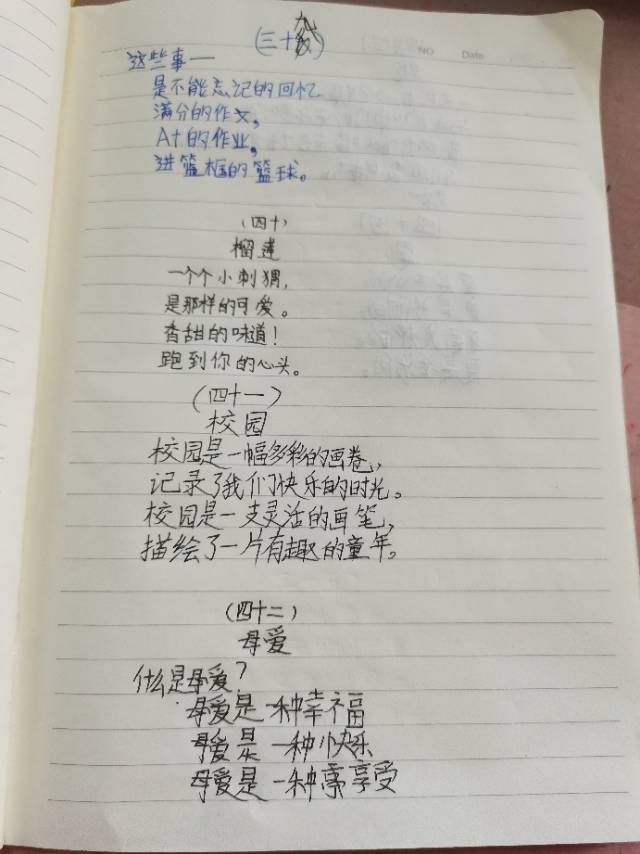 (三十九)
NO Date
这些事一
是不能忘记的回忆
满分的作文,
A+的作业,
进篮框的篮球。
(四十)
榴莲
一个个小刺猬,
是那样的可爱。
香甜的味道!
跑到你的心头。
(四十一)
校园
校园是一幅多彩的画卷,
记录了我们快乐的时光。
校园是一支灵活的画笔,
描绘了一片有趣的童年。
(四十二)
母爱
什么是母爱?
母爱是一种幸福
母爱是一种快乐
母爱是一种享受